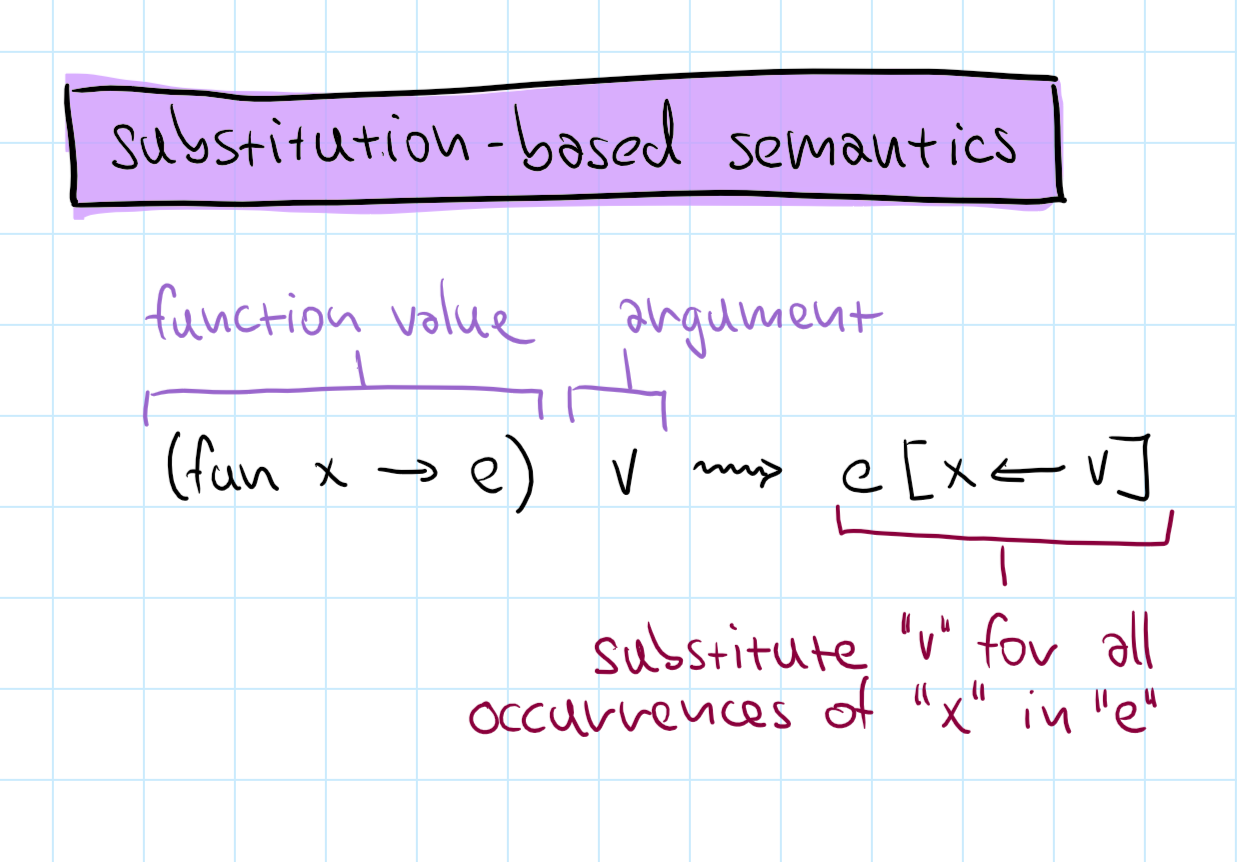 substitution-based semantics
function value argument
(fun x → e) v ⇝ e[x ← v]
substitute "v" for all
occurrences of "x" in "e"